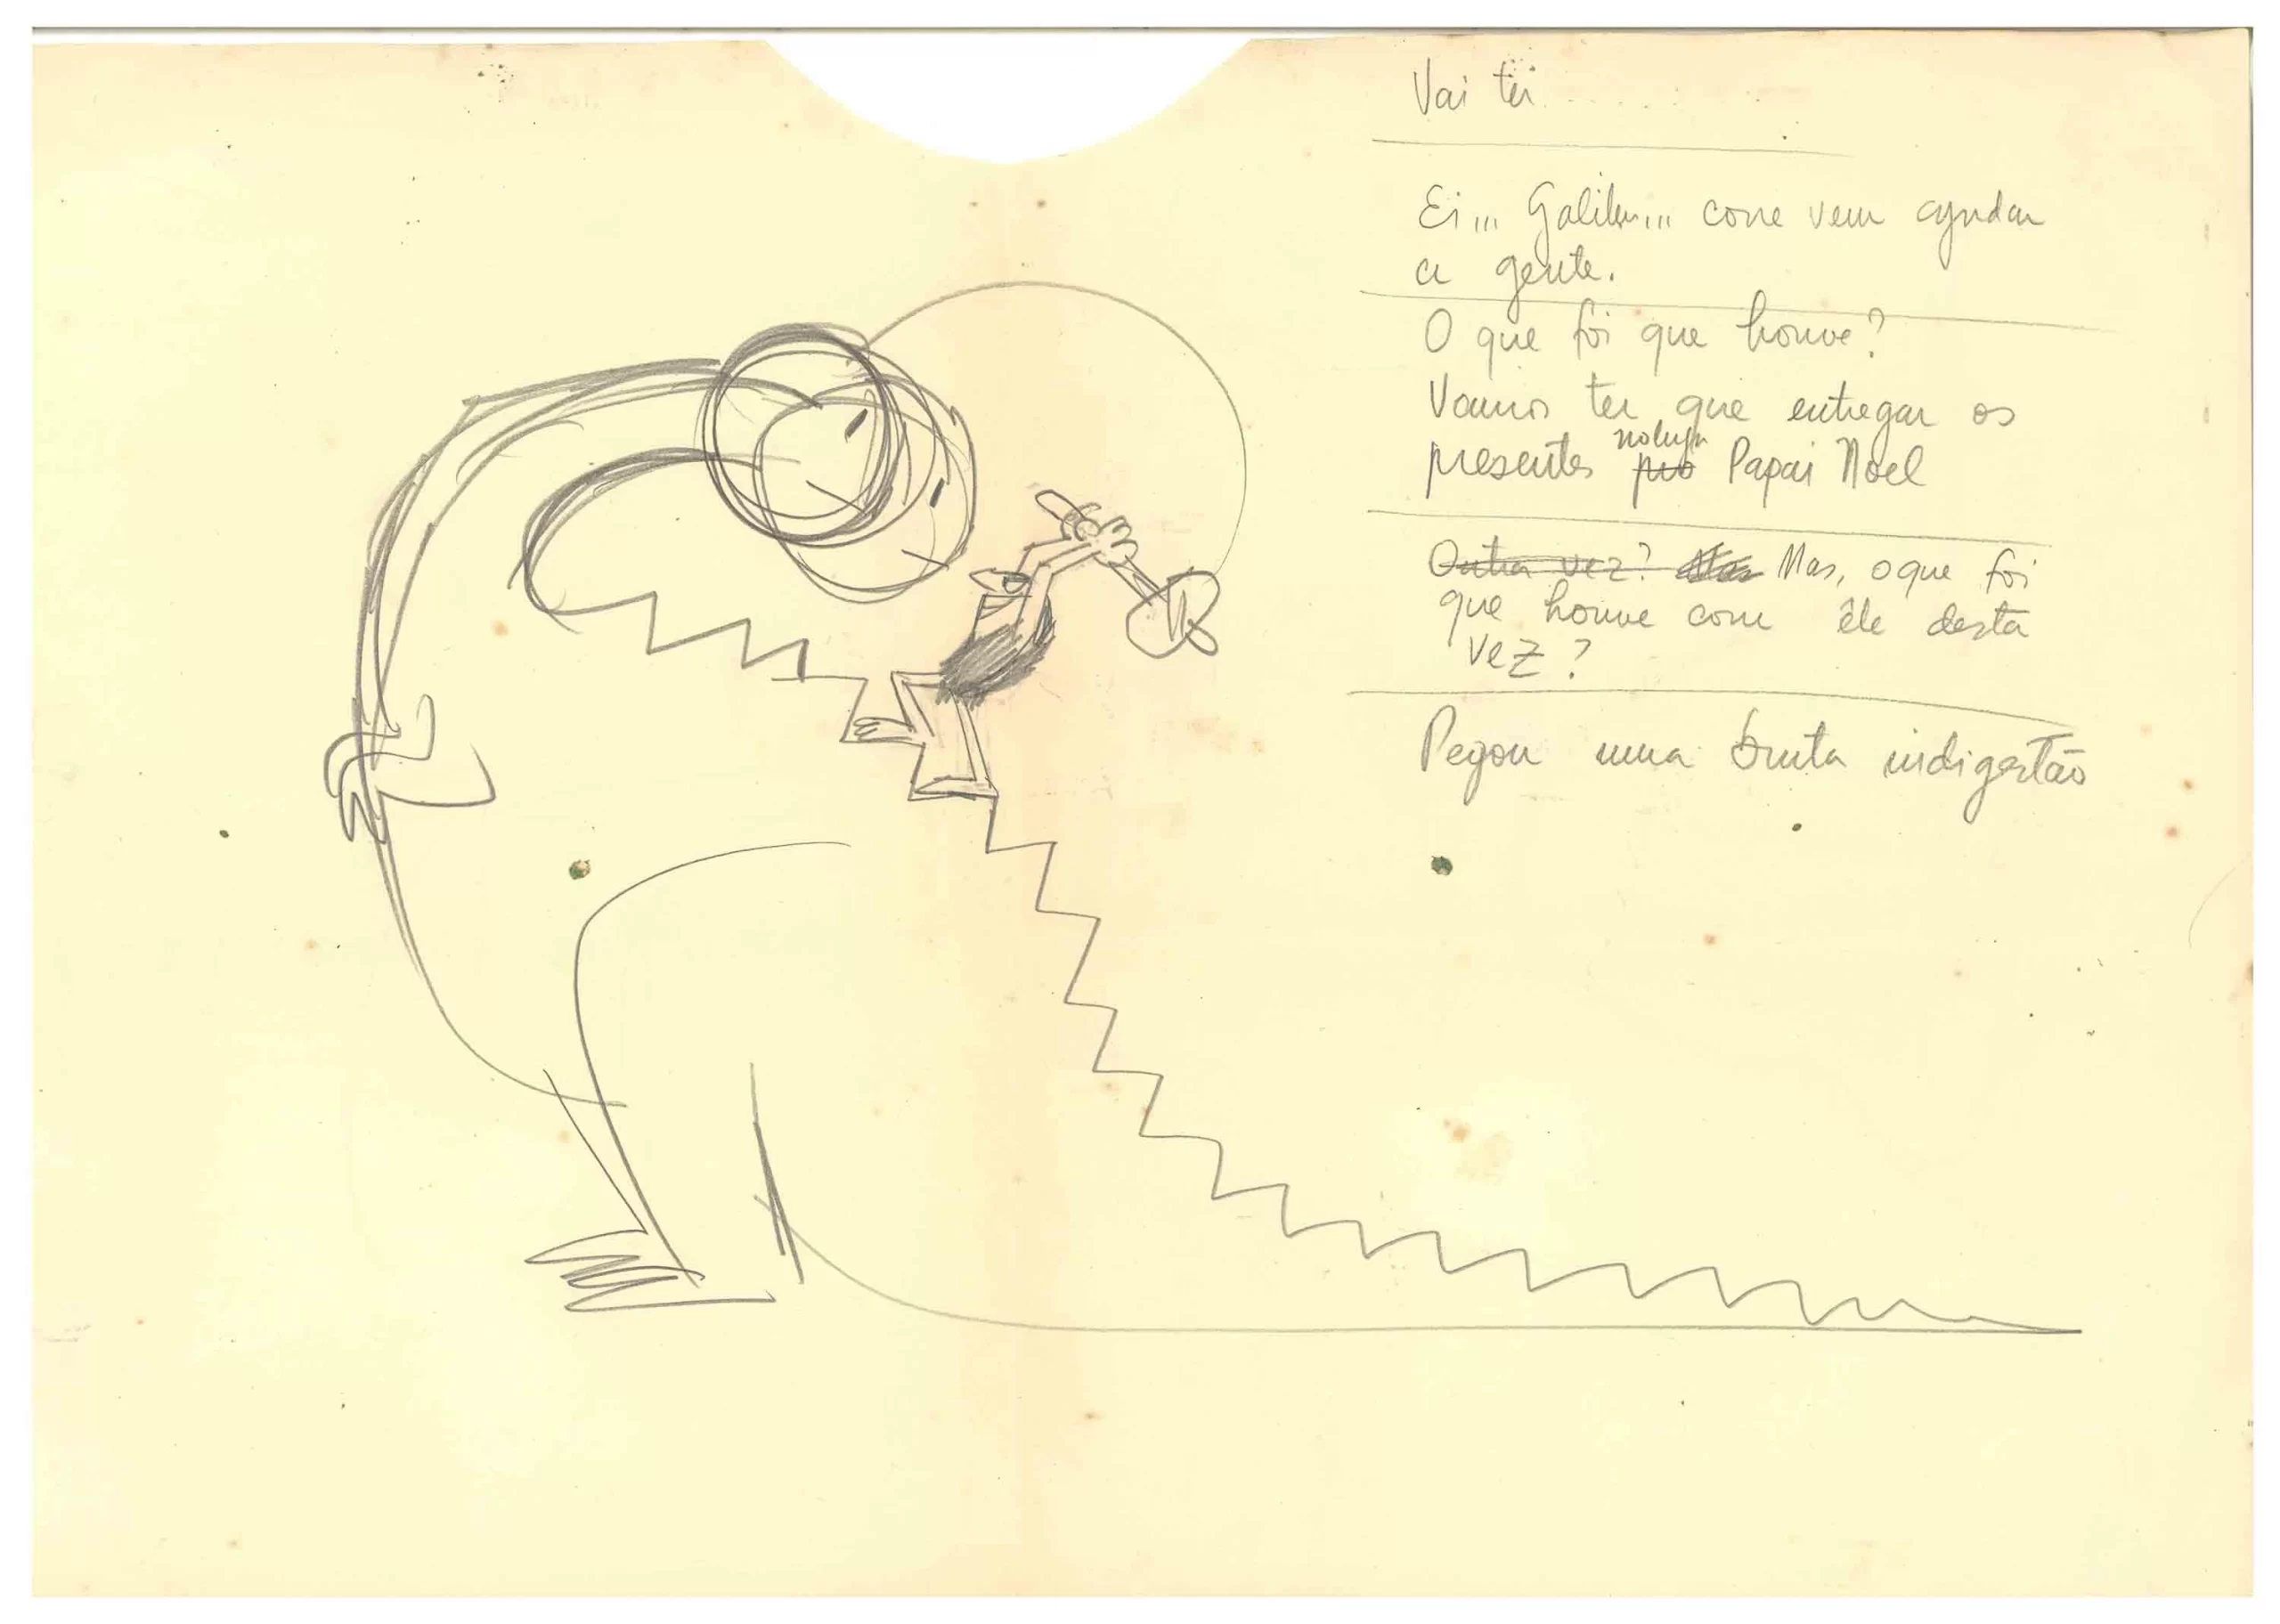 Vai ter . . . . . .
Ei... Galileu... corre vem ajudar
a gente.
O que foi que houve?
Vamos ter que entregar os
no lugar
presentes pro Papai Noel
Outra vez? Mas, o que foi
que houve com êle desta
vez?
Pegou uma bruta indigestão